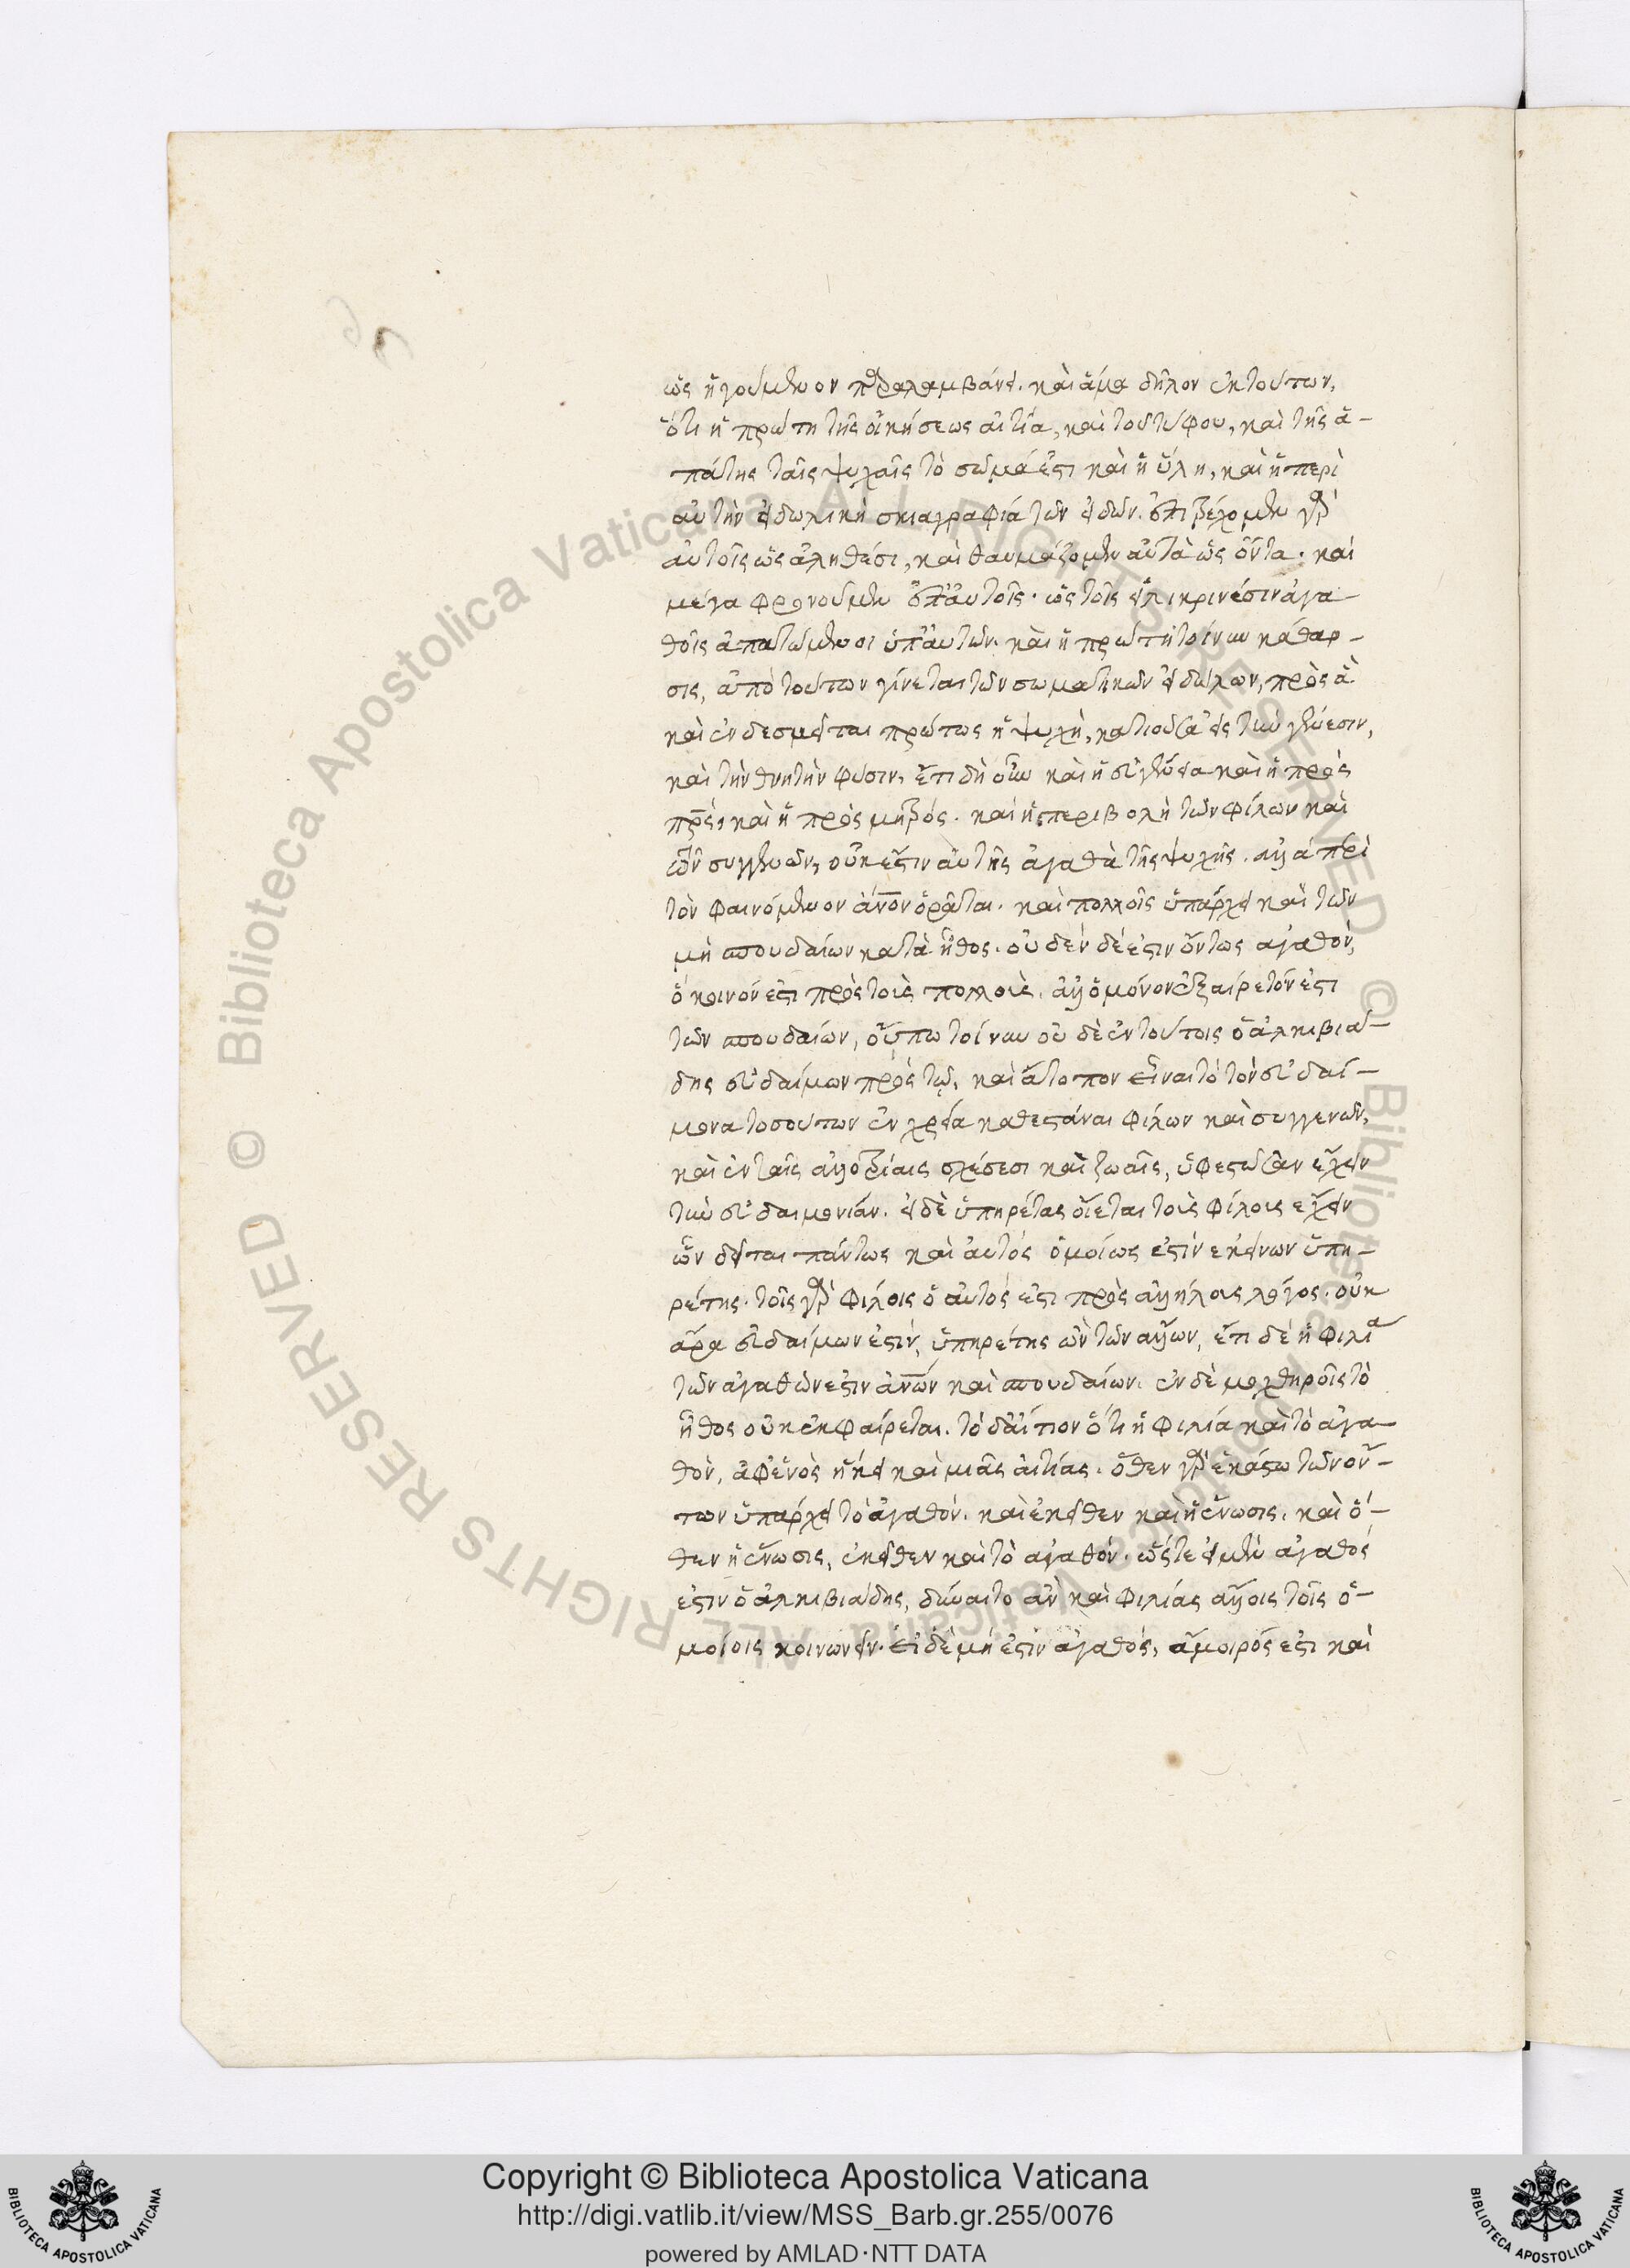 ὡς ἡγούμενον παραλαμβάνει. καὶ ἅμα δῆλον ἐκ τούτων,
ὅτι ἡ πρώτη τῆς οἰκήσεως αἰτία, καὶ τοῦ τύφου, καὶ τῆς ἀ-
πάτης ταῖς ψυχαῖς τὸ σῶμά ἐστι καὶ ἡ ὕλη, καὶ ἡ περὶ
αὐτὴν εἰδωλικὴ σκιαγραφία τῶν εἰδῶν. ἐπιτρέχομεν γὰρ
αὐτοῖς ὡς ἀληθέσι, καὶ θαυμάζομεν αὐτὰ ὡς ὄντα. καὶ
μέγα φρονοῦμεν ἐπ' αὐτοῖς. ὡς τοῖς εἰλικρινέσιν ἀγα-
θοῖς ἀπατώμενοι ὑπ' αὐτῶν. καὶ ἡ πρώτη τοίνυν κάθαρ-
σις, ἀπὸ τούτων γίνεται τῶν σωματικῶν εἰδώλων, πρὸς ἃ
καὶ ἐνδεσμεῖται πρώτως ἡ ψυχὴ, κατιοῦσα εἰς τὴν γένεσιν,
καὶ τὴν θνητὴν φύσιν, ἔτι δὴ οὖν καὶ ἡ εὐγένεια καὶ ἡ πρὸς
πρς, καὶ ἡ πρὸς μητρός. καὶ ἡ περιβολὴ τῶν φίλων καὶ
τῶν συγγενῶν, οὐκ ἔστιν αὐτῆς ἀγαθὰ τῆς ψυχῆς. ἀλλὰ περὶ
τὸν φαινόμενον ἄνον ὁρᾶται. καὶ πολλοῖς ὑπάρχει καὶ τῶν
μὴ σπουδαίων κατὰ ἦθος. οὐδὲν δέ ἐστιν ὄντως ἀγαθὸν,
ὃ κοινόν ἐστι πρὸς τοὺς πολλούς. ἀλλ' ὃ μόνον ἐξαίρετόν ἐστι
τῶν σπουδαίων, οὔπω τοίνυν οὐδὲ ἐν τούτοις ὁ ἀλκιβιά-
δης εὐδαίμων πρὸς τῷ, καὶ ἄτοπον εἶναι τὸ τὸν εὐδαί-
μονα τοσούτων ἐν χρείᾳ καθεστάναι φίλων καὶ συγγενῶν,
καὶ ἐν ταῖς ἀλλοτρίαις σχέσεσι καὶ ζωαῖς, ὑφεστῶσαν ἔχειν
τὴν εὐδαιμονίαν. εἰ δὲ ὑπηρέτας οἴεται τοὺς φίλους ἔχειν
ὧν δεῖται πάντως καὶ αὐτὸς ὁμοίως ἐστὶν ἐκείνων ὑπη-
ρέτης. τοῖς γὰρ φίλοις ὁ αὐτός ἐστι πρὸς ἀλλήλους λόγος. οὐκ
ἄρα εὐδαίμων ἐστίν, ὑπηρέτης ὢν τῶν ἄλλων, ἔτι δὲ ἡ φιλία
τῶν ἀγαθῶν ἐστιν ἀνων καὶ σπουδαίων. ἐν δὲ μοχθηροῖς τὸ
ἦθος οὐκ ἐκφαίρεται. τὸ δ' αἴτιον ὅτι ἡ φιλία καὶ τὸ ἀγα-
θὸν, ἀφ' ἑνὸς ἥκει καὶ μιᾶς αἰτίας. ὅθεν γὰρ ἑκάστῳ τῶν ὄν-
των ὑπάρχει τὸ ἀγαθόν. καὶ ἐκεῖθεν καὶ ἡ ἕνωσις. καὶ ὅ-
θεν ἡ ἕνωσις, ἐκεῖθεν καὶ τὸ ἀγαθόν. ὥστε εἰ μὲν ἀγαθός
ἐστιν ὁ ἀλκιβιάδης, δύναιτο ἂν καὶ φιλίας ἄλλοις τοῖς ὁ-
μοίοις κοινωνεῖν. εἰ δὲ μή ἐστιν ἀγαθὸς, ἄμοιρός ἐστι καὶ
Copyright © Biblioteca Apostolica Vaticana
http://digi.vatlib.it/view/MSS_Barb.gr.255/0076
powered by AMLAD·NTT DATA